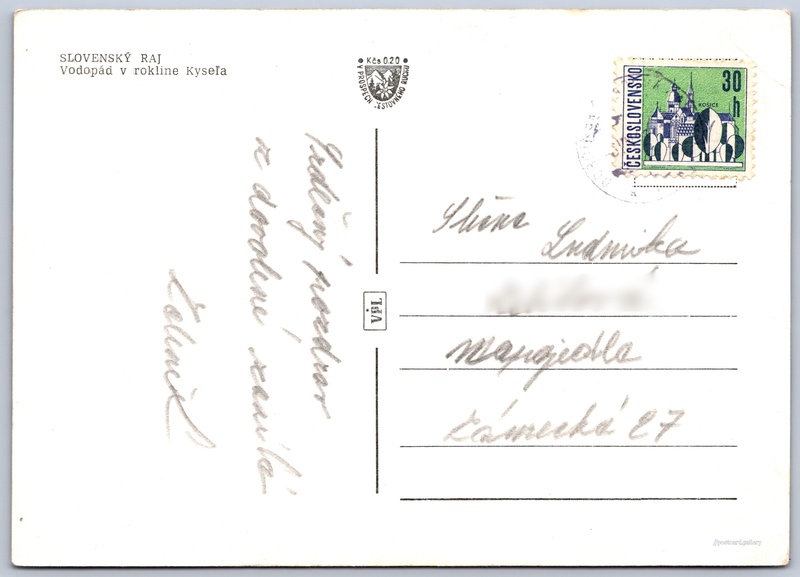 SLOVENSKÝ RAJ
Vodopád v rokline Kyseľa
Kčs 0.20
V PROSPECH CESTOVNÉHO RUCHU
ČESKOSLOVENSKO
30
h
KOŠICE
Srdečný pozdrav
z dovolené zasílá
VPL
Slečna
Ludmika
Zámecká 27